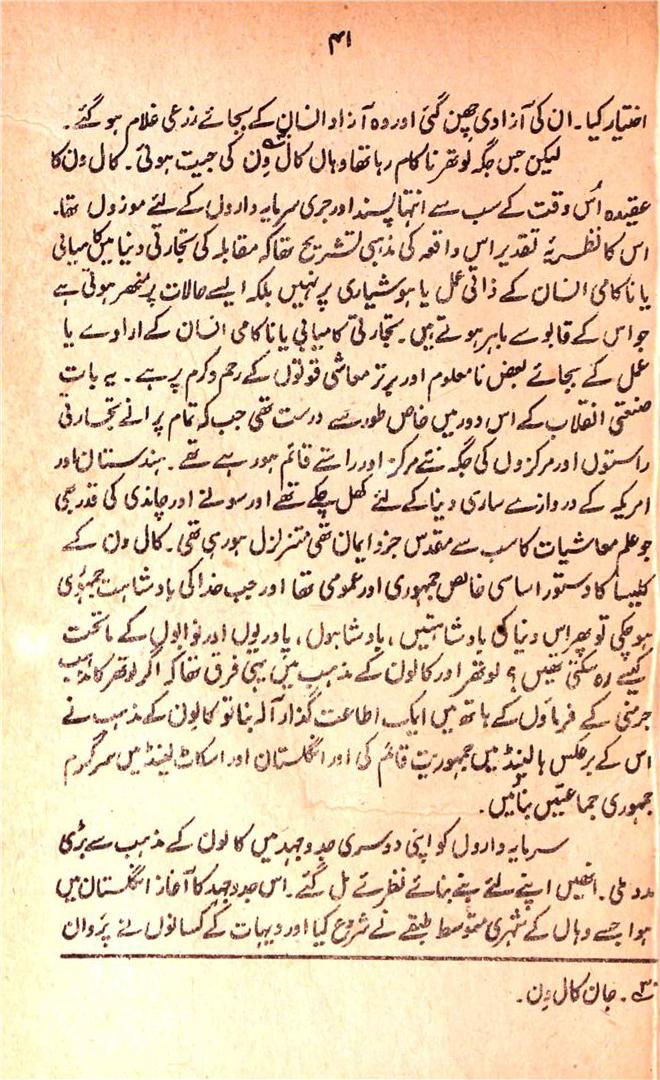 ۴۱
اختیار کیا۔ ان کی آزادی چھن گئی اور وہ آزاد انسان کے بجائے زرعی غلام ہو گئے۔
لیکن جس جگہ لوتھر ناکام رہا تھا وہاں کال وِن کی جیت ہوئی۔ کال ون کا
عقیدہ اُس وقت کے سب سے انتہا پسند اور جری سرمایہ داروں کے لئے موزوں تھا۔
اس کا نظریۂ تقدیر اس واقعہ کی مذہبی تشریح تھا کہ مقابلہ کی تجارتی دنیا میں کامیابی
یا ناکامی انسان کے ذاتی عمل یا ہوشیاری پر نہیں بلکہ ایسے حالات پر منحصر ہوتی ہے
جو اس کے قابو سے باہر ہوتے ہیں۔ تجارتی کامیابی یا ناکامی انسان کے ارادے یا
عمل کے بجائے بعض نامعلوم اور برتر معاشی قوتوں کے رحم و کرم پر ہے۔ یہ بات
صنعتی انقلاب کے اس دور میں خاص طور سے درست تھی جب کہ تمام پرانے تجارتی
راستوں اور مرکزوں کی جگہ نئے مرکز اور راستے قائم ہو رہے تھے۔ ہندستان اور
امریکہ کے دروازے ساری دنیا کے لئے کھل چکے تھے اور سونے اور چاندی کی قدر بھی
جو علم معاشیات کا سب سے مقدس جزو ایمان تھی متزلزل ہو رہی تھی۔ کال ون کے
کلیسا کا دستور اساسی خالص جمہوری اور عمومی تھا اور جب خدا کی بادشاہت جمہوری
ہو چکی تو پھر اس دنیا کی بادشاہتیں، بادشاہوں، پادریوں اور نوابوں کے ماتحت
کیسے رہ سکتی تھیں؟ لوتھر اور کالون کے مذہب میں یہی فرق تھا کہ اگر لوتھر کا مذہب
جرمنی کے فرماؤں کے ہاتھ میں ایک اطاعت گذار آلہ بنا تو کالون کے مذہب نے
اس کے برعکس ہالینڈ میں جمہوریت قائم کی اور انگلستان اور اسکاٹ لینڈ میں سرگرم
جمہوری جماعتیں بنائیں۔
سرمایہ داروں کو اپنی دوسری جدوجہد میں کالون کے مذہب سے بڑی
مدد ملی۔ انھیں اپنے لئے بنے بنائے نظریے مل گئے۔ اس جدوجہد کا آغاز انگلستان میں
ہوا جسے وہاں کے شہری متوسط طبقے نے شروع کیا اور دیہات کے کسانوں نے پروان
۳؎۔ جان کال وِن۔